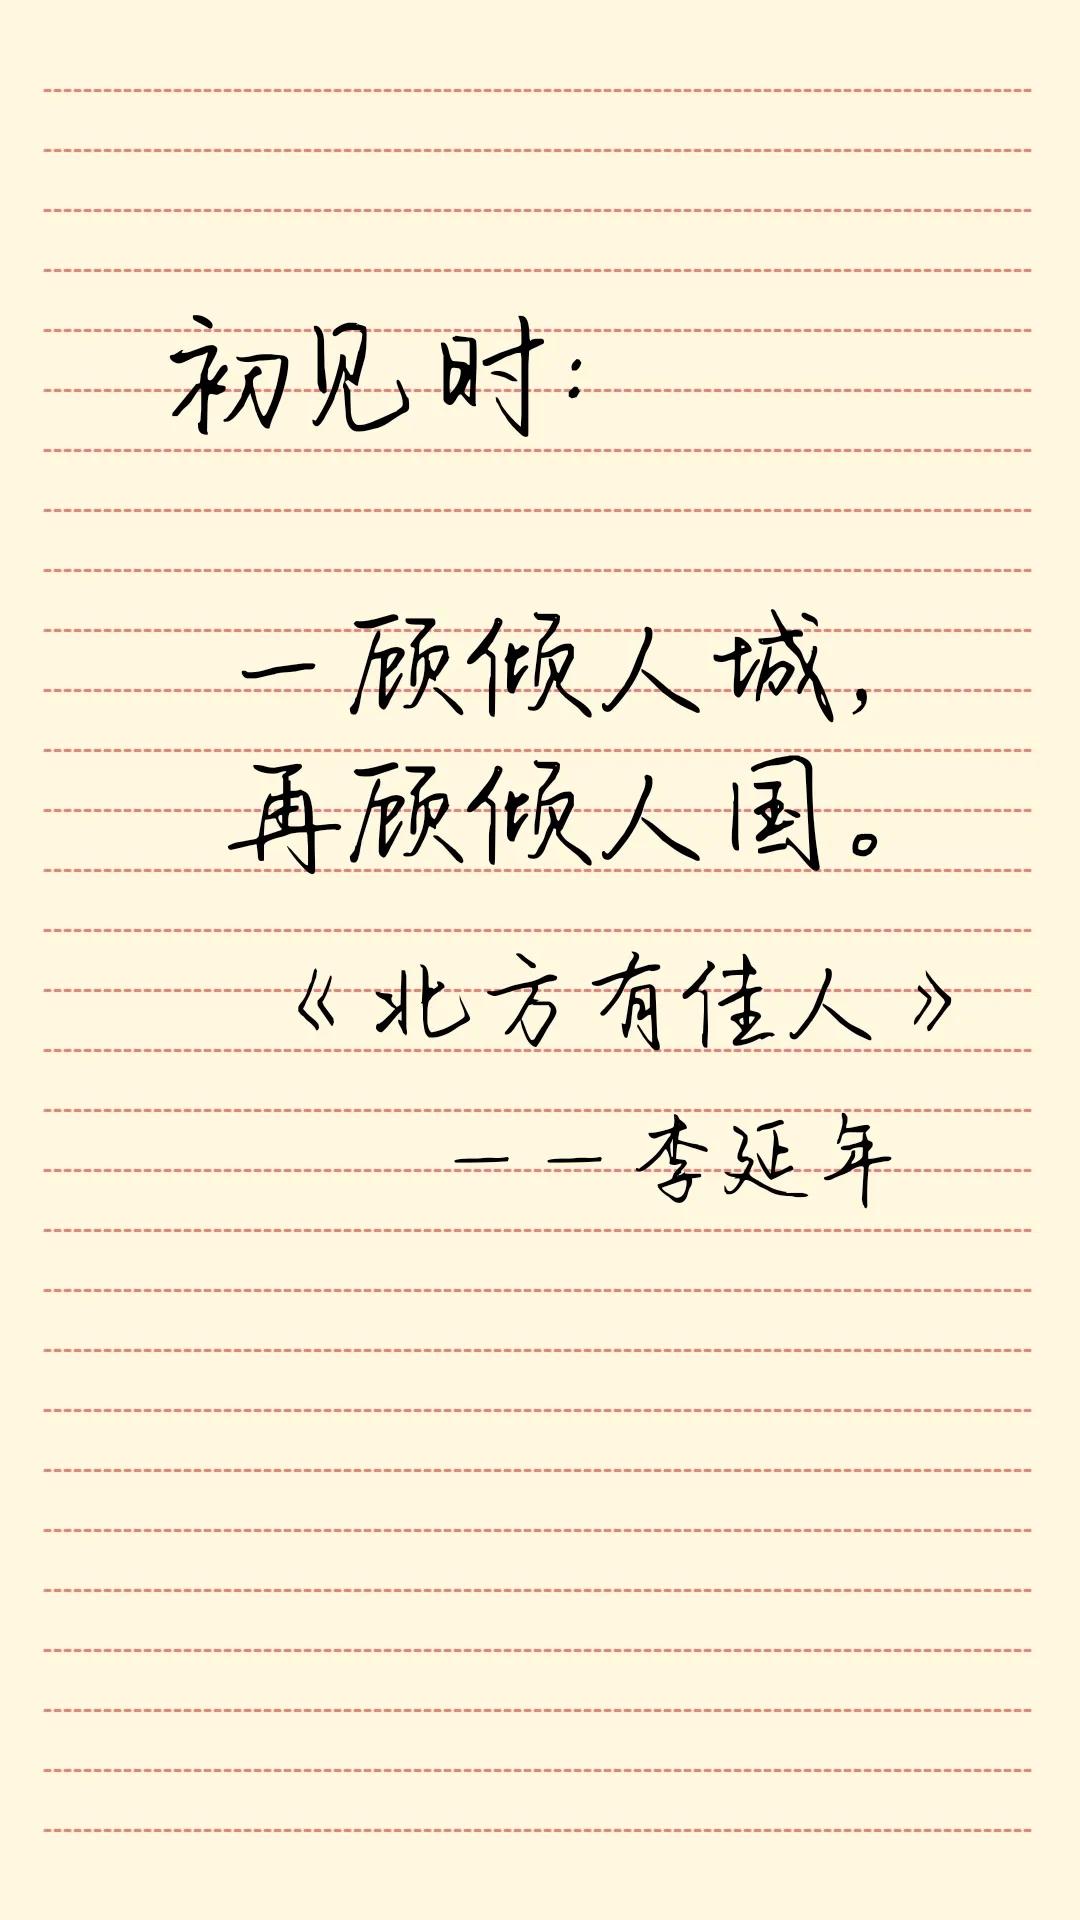 初见时:
一顾倾人城,
再顾倾人国。
《北方有佳人》
——李延年